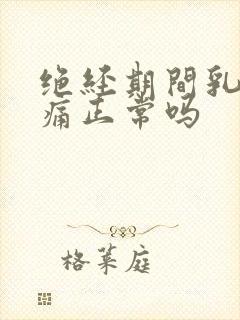 绝经期間乳
痛正常吗
格莱庭